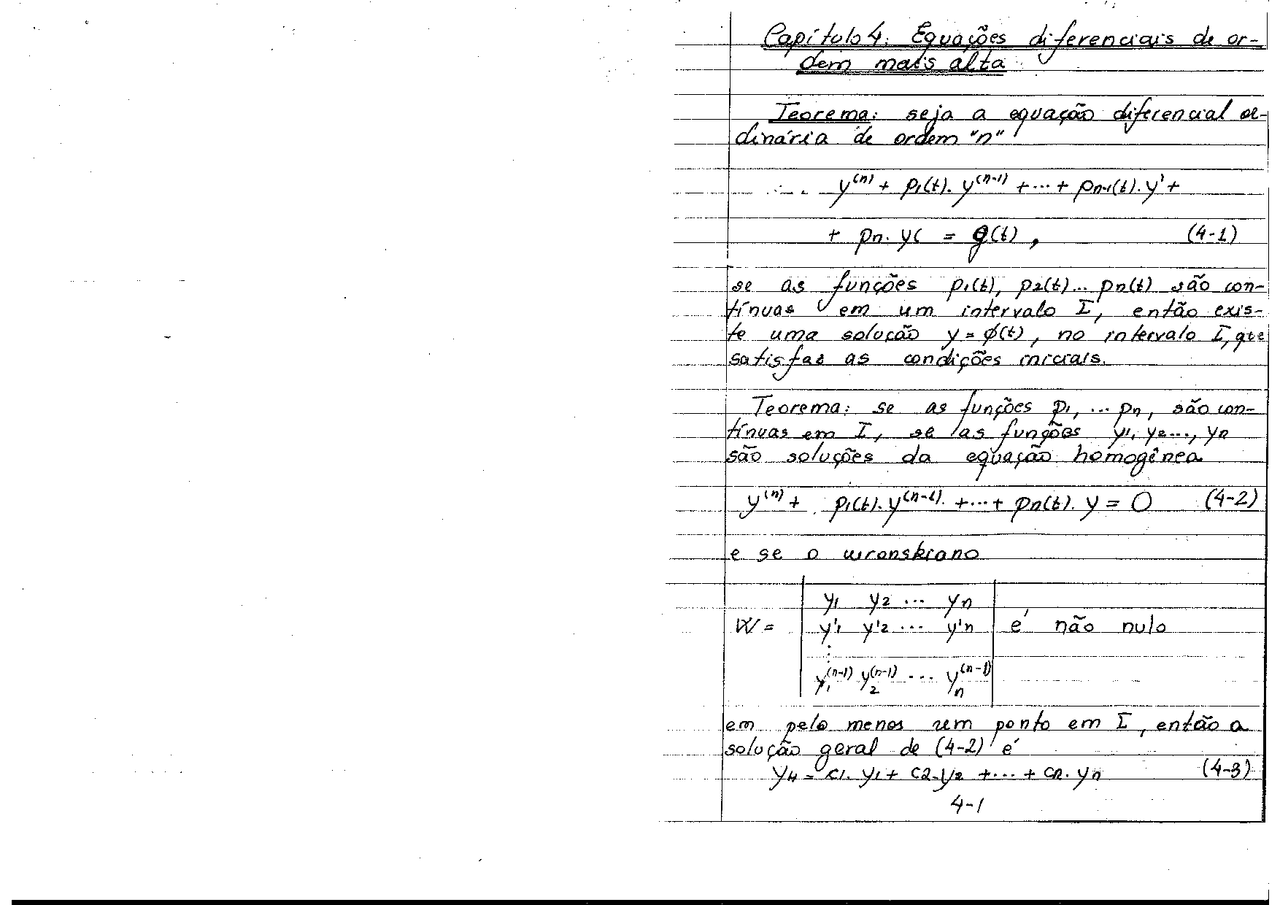 Capítulo 4: Equações diferenciais de or-
dem mais alta
Teorema: seja a equação diferencial or-
dinária de ordem "n"
y⁽ⁿ⁾ + p1(t). y⁽ⁿ⁻¹⁾ + ... + pn-1(t). y' +
+ pn. y( = g(t), (4-1)
se as funções p1(t), p2(t)... pn(t) são con-
tínuas em um intervalo I, então exis-
te uma solução y = ϕ(t), no intervalo I, que
satisfaz as condições iniciais.
Teorema: se as funções p1, ... pn, são con-
tínuas em I, se as funções y1, y2..., yn
são soluções da equação homogênea
y⁽ⁿ⁾ + p1(t). y⁽ⁿ⁻¹⁾ + ... + pn(t). y = 0 (4-2)
e se o wronskiano
y1 y2 ... yn
W = y'1 y'2 ... y'n é não nulo
⋮
y1⁽ⁿ⁻¹⁾ y2⁽ⁿ⁻¹⁾ ... yn⁽ⁿ⁻¹⁾
em pelo menos um ponto em I, então a
solução geral de (4-2) é
yH = c1. y1 + c2. y2 + ... + cn. yn (4-3)
4-1